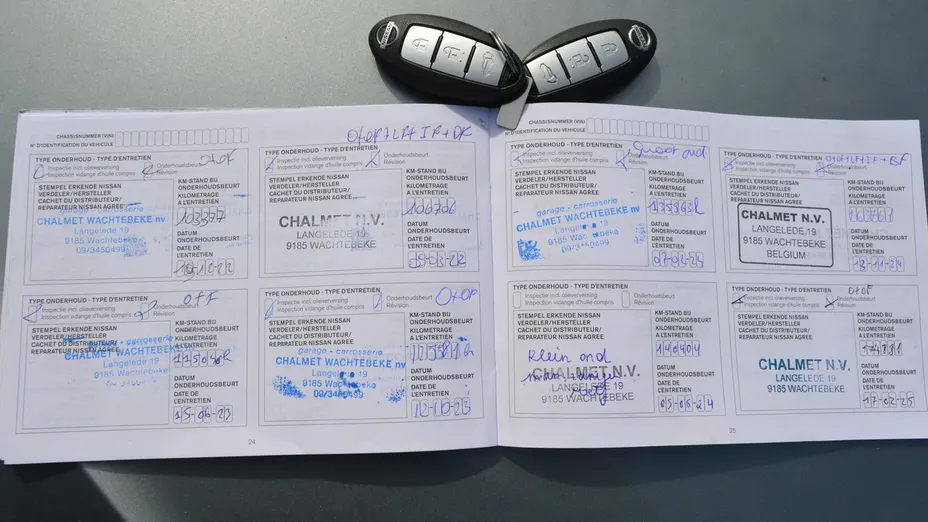 CHASSISNUMMER (VIN)
N° D'IDENTIFICATION DU VEHICULE
TYPE ONDERHOUD - TYPE D'ENTRETIEN
O+OF
Inspectie incl. olieverversing
Inspection vidange d'huile compris
Onderhoudsbeurt
Révision
STEMPEL ERKENDE NISSAN
VERDELER/HERSTELLER
CACHET DU DISTRIBUTEUR/
REPARATEUR NISSAN AGREE
garage - carrosserie
CHALMET WACHTEBEKE nv
Langelede 19
9185 Wachtebeke
09/3450499
KM-STAND BIJ
ONDERHOUDSBEURT
KILOMETRAGE
A L'ENTRETIEN
DATUM
ONDERHOUDSBEURT
DATE DE
L'ENTRETIEN
TYPE ONDERHOUD - TYPE D'ENTRETIEN
Inspectie incl. olieverversing
Inspection vidange d'huile compris
Onderhoudsbeurt
Révision
STEMPEL ERKENDE NISSAN
VERDELER/HERSTELLER
CACHET DU DISTRIBUTEUR/
REPARATEUR NISSAN AGREE
CHALMET N.V.
LANGELEDE 19
9185 WACHTEBEKE
KM-STAND BIJ
ONDERHOUDSBEURT
KILOMETRAGE
A L'ENTRETIEN
DATUM
ONDERHOUDSBEURT
DATE DE
L'ENTRETIEN
TYPE ONDERHOUD - TYPE D'ENTRETIEN
Inspectie incl. olieverversing
Inspection vidange d'huile compris
Onderhoudsbeurt
Révision
STEMPEL ERKENDE NISSAN
VERDELER/HERSTELLER
CACHET DU DISTRIBUTEUR/
REPARATEUR NISSAN AGREE
garage - carrosserie
CHALMET WACHTEBEKE
Langelede 19
9185 Wachtebeke
KM-STAND BIJ
ONDERHOUDSBEURT
KILOMETRAGE
A L'ENTRETIEN
DATUM
ONDERHOUDSBEURT
DATE DE
L'ENTRETIEN
15-06-23
TYPE ONDERHOUD - TYPE D'ENTRETIEN
O+OF
Inspectie incl. olieverversing
Inspection vidange d'huile compris
Onderhoudsbeurt
Révision
STEMPEL ERKENDE NISSAN
VERDELER/HERSTELLER
CACHET DU DISTRIBUTEUR/
REPARATEUR NISSAN AGREE
garage - carrosserie
CHALMET WACHTEBEKE nv
Langelede 19
9185 Wachtebeke
09/3450499
KM-STAND BIJ
ONDERHOUDSBEURT
KILOMETRAGE
A L'ENTRETIEN
DATUM
ONDERHOUDSBEURT
DATE DE
L'ENTRETIEN
12-10-23
24
CHASSISNUMMER (VIN)
N° D'IDENTIFICATION DU VEHICULE
TYPE ONDERHOUD - TYPE D'ENTRETIEN
Groot ond.
Inspectie incl. olieverversing
Inspection vidange d'huile compris
Onderhoudsbeurt
Révision
STEMPEL ERKENDE NISSAN
VERDELER/HERSTELLER
CACHET DU DISTRIBUTEUR/
REPARATEUR NISSAN AGREE
garage - carrosserie
CHALMET WACHTEBEKE nv
Langelede 19
9185 Wachtebeke
09/3450499
KM-STAND BIJ
ONDERHOUDSBEURT
KILOMETRAGE
A L'ENTRETIEN
DATUM
ONDERHOUDSBEURT
DATE DE
L'ENTRETIEN
07-02-24
TYPE ONDERHOUD - TYPE D'ENTRETIEN
Inspectie incl. olieverversing
Inspection vidange d'huile compris
Onderhoudsbeurt
Révision
STEMPEL ERKENDE NISSAN
VERDELER/HERSTELLER
CACHET DU DISTRIBUTEUR/
REPARATEUR NISSAN AGREE
CHALMET N.V.
LANGELEDE 19
9185 WACHTEBEKE
BELGIUM
KM-STAND BIJ
ONDERHOUDSBEURT
KILOMETRAGE
A L'ENTRETIEN
DATUM
ONDERHOUDSBEURT
DATE DE
L'ENTRETIEN
13-11-24
Inspectie incl. olieverversing
Inspection vidange d'huile compris
Onderhoudsbeurt
Révision
STEMPEL ERKENDE NISSAN
VERDELER/HERSTELLER
CACHET DU DISTRIBUTEUR/
REPARATEUR NISSAN AGREE
Klein ond
CHALMET N.V.
LANGELEDE 19
9185 WACHTEBEKE
KM-STAND BIJ
ONDERHOUDSBEURT
KILOMETRAGE
A L'ENTRETIEN
140404
DATUM
ONDERHOUDSBEURT
DATE DE
L'ENTRETIEN
05-06-24
TYPE ONDERHOUD - TYPE D'ENTRETIEN
O+OF
Inspectie incl. olieverversing
Inspection vidange d'huile compris
Onderhoudsbeurt
Révision
STEMPEL ERKENDE NISSAN
VERDELER/HERSTELLER
CACHET DU DISTRIBUTEUR/
REPARATEUR NISSAN AGREE
CHALMET N.V.
LANGELEDE 19
9185 WACHTEBEKE
KM-STAND BIJ
ONDERHOUDSBEURT
KILOMETRAGE
A L'ENTRETIEN
DATUM
ONDERHOUDSBEURT
DATE DE
L'ENTRETIEN
17-02-25
25